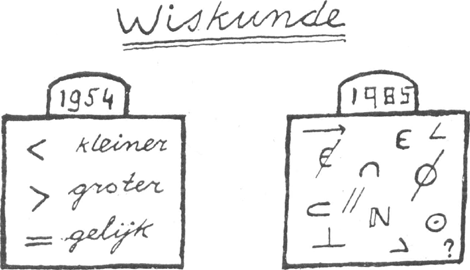 Wiskunde
1954
< kleiner
> groter
= gelijk
1985
→ ∉ ∩ ∈ ∠ ∅
⊂ // ℕ ⊙
⊥ ┘ ?